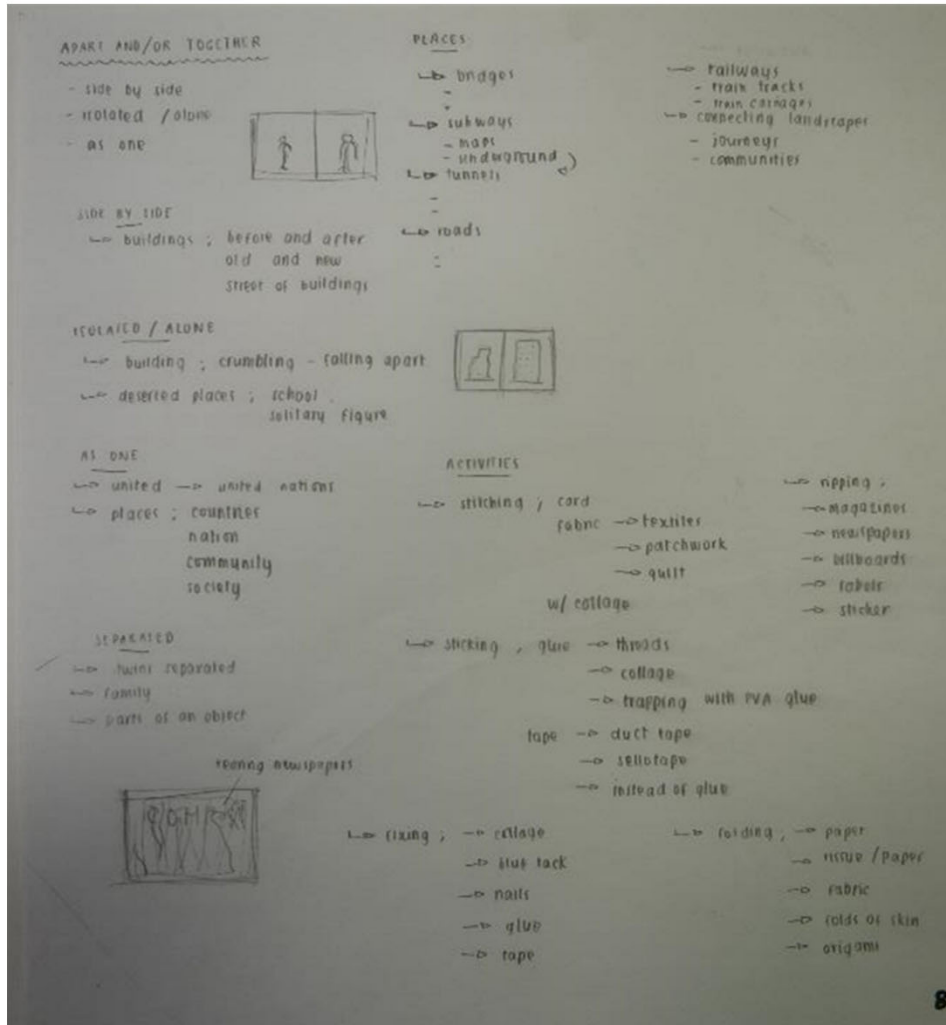 APART AND/OR TOGETHER
- side by side
- isolated / alone
- as one
SIDE BY SIDE
buildings ; before and after
old and new
street of buildings
ISOLATED / ALONE
building ; crumbling - falling apart
deserted places ; school
solitary figure
AS ONE
united → united nations
places ; countries
nation
community
society
SEPARATED
twins separated
family
parts of an object
tearing newspapers
PLACES
bridges
subways
- maps
- underground
tunnels
roads
railways
- train tracks
- train carriages
connecting landscapes
- journeys
- communities
ACTIVITIES
stitching ; card
fabric → textiles
→ patchwork
→ quilt
w/ collage
ripping ;
→ magazines
→ newspapers
→ billboards
→ labels
→ sticker
sticking , glue → threads
→ collage
→ trapping with PVA glue
tape → duct tape
→ sellotape
→ instead of glue
fixing ; → collage
→ blue tack
→ nails
→ glue
→ tape
folding ; → paper
→ tissue / paper
→ fabric
→ folds of skin
→ origami
8